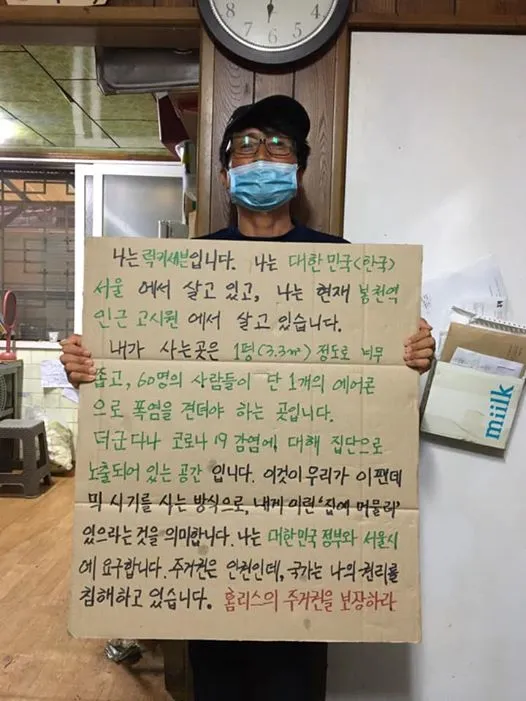 8
7
6
5
4
나는 럭키세븐입니다. 나는 대한민국(한국)
서울 에서 살고 있고, 나는 현재 봉천역
인근 고시원 에서 살고 있습니다.
내가 사는곳은 1평(3.3㎡) 정도로 너무
좁고, 60명의 사람들이 단 1개의 에어콘
으로 폭염을 견뎌야 하는 곳입니다.
더군다나 코로나 19 감염에 대해 집단으로
노출되어 있는 공간 입니다. 이것이 우리가 이 팬데
믹 시기를 사는 방식으로, 내게 이런 '집에 머물러'
있으라는 것을 의미합니다. 나는 대한민국 정부와 서울시
에 요구합니다. 주거권은 인권인데, 국가는 나의 권리를
침해하고 있습니다. 홈리스의 주거권을 보장하라
miilk